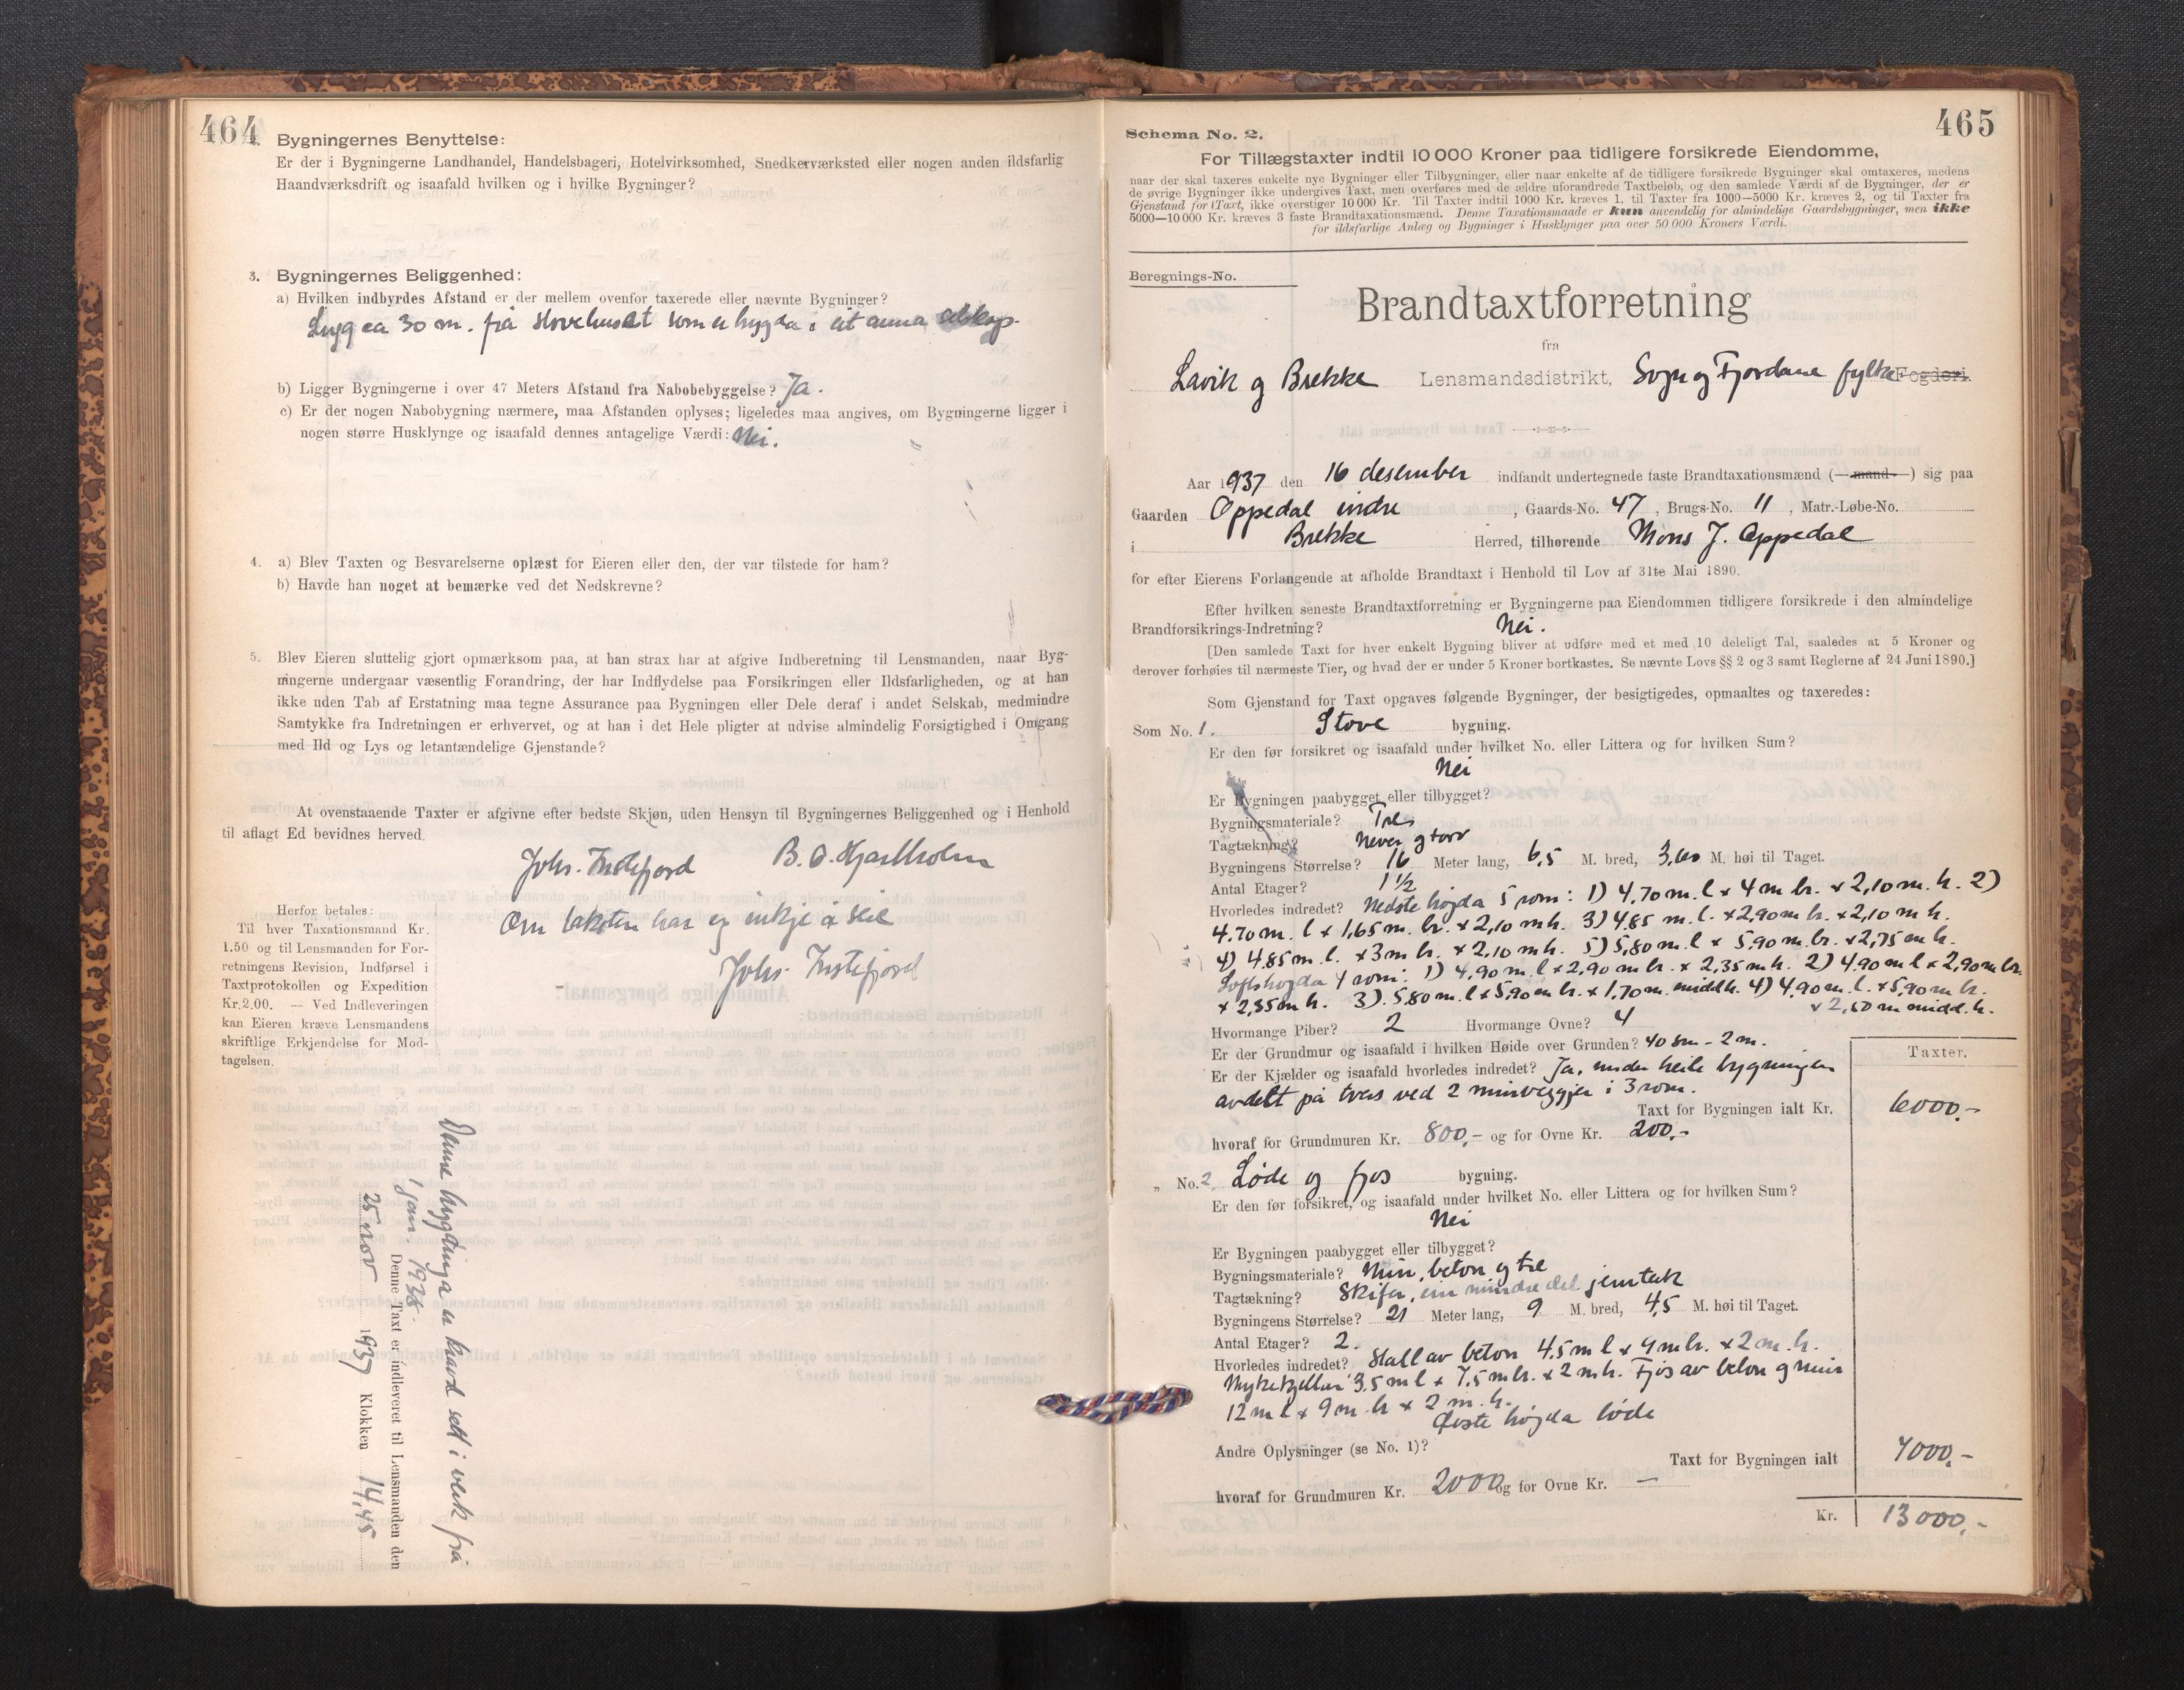 464
2. Bygningernes Benyttelse:
Er der i Bygningerne Landhandel, Handelsbageri, Hotelvirksomhed, Snedkerværksted eller nogen anden ildsfarlig
Haandværksdrift og isaafald hvilken og i hvilke Bygninger?
3. Bygningernes Beliggenhed:
a) Hvilken indbyrdes Afstand er der mellem ovenfor taxerede eller nævnte Bygninger?
Ligg ca 30 m. frå stovehuset som er bygda i eit anna selskap.
b) Ligger Bygningerne i over 47 Meters Afstand fra Nabobebyggelse? Ja.
c) Er der nogen Nabobygning nærmere, maa Afstanden oplyses; ligeledes maa angives, om Bygningerne ligger i
nogen større Husklynge og isaafald dennes antagelige Værdi: Nei.
4. a) Blev Taxten og Besvarelserne oplæst for Eieren eller den, der var tilstede for ham?
b) Havde han noget at bemærke ved det Nedskrevne?
5. Blev Eieren sluttelig gjort opmærksom paa, at han strax har at afgive Indberetning til Lensmanden, naar Byg-
ningerne undergaar væsentlig Forandring, der har Indflydelse paa Forsikringen eller Ildsfarligheden, og at han
ikke uden Tab af Erstatning maa tegne Assurance paa Bygningen eller Dele deraf i andet Selskab, medmindre
Samtykke fra Indretningen er erhvervet, og at han i det Hele pligter at udvise almindelig Forsigtighed i Omgang
med Ild og Lys og letantændelige Gjenstande?
At ovenstaaende Taxter er afgivne efter bedste Skjøn, uden Hensyn til Bygningernes Beliggenhed og i Henhold
til aflagt Ed bevidnes herved.
Johs. Instefjord B. O. Hjartholm
Om taksten har eg inkje å seie
Johs. Instefjord
Herfor betales:
Til hver Taxationsmand Kr.
1.50 og til Lensmanden for For-
retningens Revision, Indførsel i
Taxtprotokollen og Expedition
Kr. 2.00. — Ved Indleveringen
kan Eieren kræve Lensmandens
skriftlige Erkjendelse for Mod-
tagelsen.
Denne bygdinga er kravd sett i verk frå
1 jan. 1938.
Denne Taxt er indleveret til Lensmanden den
25 nov 1937 Klokken 14,45
465
Schema No. 2.
For Tillægstaxter indtil 10 000 Kroner paa tidligere forsikrede Eiendomme,
naar der skal taxeres enkelte nye Bygninger eller Tilbygninger, eller naar enkelte af de tidligere forsikrede Bygninger skal omtaxeres, medens
de øvrige Bygninger ikke undergives Taxt, men overføres med de ældre uforandrede Taxtbeløb, og den samlede Værdi af de Bygninger, der er
Gjenstand for Taxt, ikke overstiger 10 000 Kr. Til Taxter indtil 1000 Kr. kræves 1, til Taxter fra 1000—5000 Kr. kræves 2, og til Taxter fra
5000—10 000 Kr. kræves 3 faste Brandtaxationsmænd. Denne Taxationsmaade er kun anvendelig for almindelige Gaardsbygninger, men ikke
for ildsfarlige Anlæg og Bygninger i Husklynger paa over 50 000 Kroners Værdi.
Beregnings-No.
Brandtaxtforretning
fra
Lavik og Brekke Lensmandsdistrikt, Sogn og Fjordane fylke Fogderi.
Aar 1937 den 16 desember indfandt undertegnede faste Brandtaxationsmænd (— mand —) sig paa
Gaarden Oppedal indre, Gaards-No. 47, Brugs-No. 11, Matr.-Løbe-No.
i Brekke Herred, tilhørende Mons J. Oppedal
for efter Eierens Forlangende at afholde Brandtaxt i Henhold til Lov af 31te Mai 1890.
Efter hvilken seneste Brandtaxtforretning er Bygningerne paa Eiendommen tidligere forsikrede i den almindelige
Brandforsikrings-Indretning? Nei.
[Den samlede Taxt for hver enkelt Bygning bliver at udføre med et med 10 deleligt Tal, saaledes at 5 Kroner og
derover forhøies til nærmeste Tier, og hvad der er under 5 Kroner bortkastes. Se nævnte Lovs §§ 2 og 3 samt Reglerne af 24 Juni 1890.]
Som Gjenstand for Taxt opgaves følgende Bygninger, der besigtigedes, opmaaltes og taxeredes:
Som No. 1. Stove bygning.
Er den før forsikret og isaafald under hvilket No. eller Littera og for hvilken Sum?
Nei
Er Bygningen paabygget eller tilbygget?
Bygningsmateriale? Tre
Tagtækning? Never og torv
Bygningens Størrelse? 16 Meter lang, 6,5 M. bred, 3,60 M. høi til Taget.
Antal Etager? 1 1/2
Hvorledes indredet? Nedste høgda 5 rom: 1) 4,70 m. l x 4 m br. x 2,10 m. h. 2)
4,70 m. l x 1,65 m. br. x 2,10 m h. 3) 4,85 m. l. x 2,90 m br. x 2,10 m h.
4) 4,85 m. l. x 3 m br. x 2,10 m h. 5) 5,80 m. l x 5,90 m. br. x 2,75 m h.
Loftshøgda 4 rom: 1) 4,90 m. l x 2,90 m br. x 2,35 m h. 2) 4,90 m l x 2,90 m br.
x 2,35 m h. 3) 5,80 m. l x 5,90 m br. x 1,70 m. midd h. 4) 4,90 m. l. x 5,90 m br.
x 2,50 m midd. h.
Hvormange Piber? 2 Hvormange Ovne? 4
Er der Grundmur og isaafald i hvilken Høide over Grunden? 40 sm - 2 m.
Er der Kjælder og isaafald hvorledes indredet? Ja, under heile bygningen
avdelt på tvers ved 2 murveggjer i 3 rom.
Taxter.
Taxt for Bygningen ialt Kr. 6000,-
hvoraf for Grundmuren Kr. 800,- og for Ovne Kr. 200,-
„ No. 2. Løde og fjos bygning.
Er den før forsikret, og isaafald under hvilket No. eller Littera og for hvilken Sum?
Nei
Er Bygningen paabygget eller tilbygget?
Bygningsmateriale? Mur, beton og tre
Tagtækning? Skifer, ein mindre del jerntak
Bygningens Størrelse? 21 Meter lang, 9 M. bred, 4,5 M. høi til Taget.
Antal Etager? 2.
Hvorledes indredet? Stall av beton 4,5 m l x 9 m br. x 2 m. h.
Mykekjellar 3,5 m l x 7,5 m br. x 2 m h. Fjos av beton og mur
12 m l x 9 m. br x 2 m. h.
Øvste høgda løde
Andre Oplysninger (se No. 1)?
Taxt for Bygningen ialt 7000,-
hvoraf for Grundmuren Kr. 2000 og for Ovne Kr. —
Kr. 13000,-